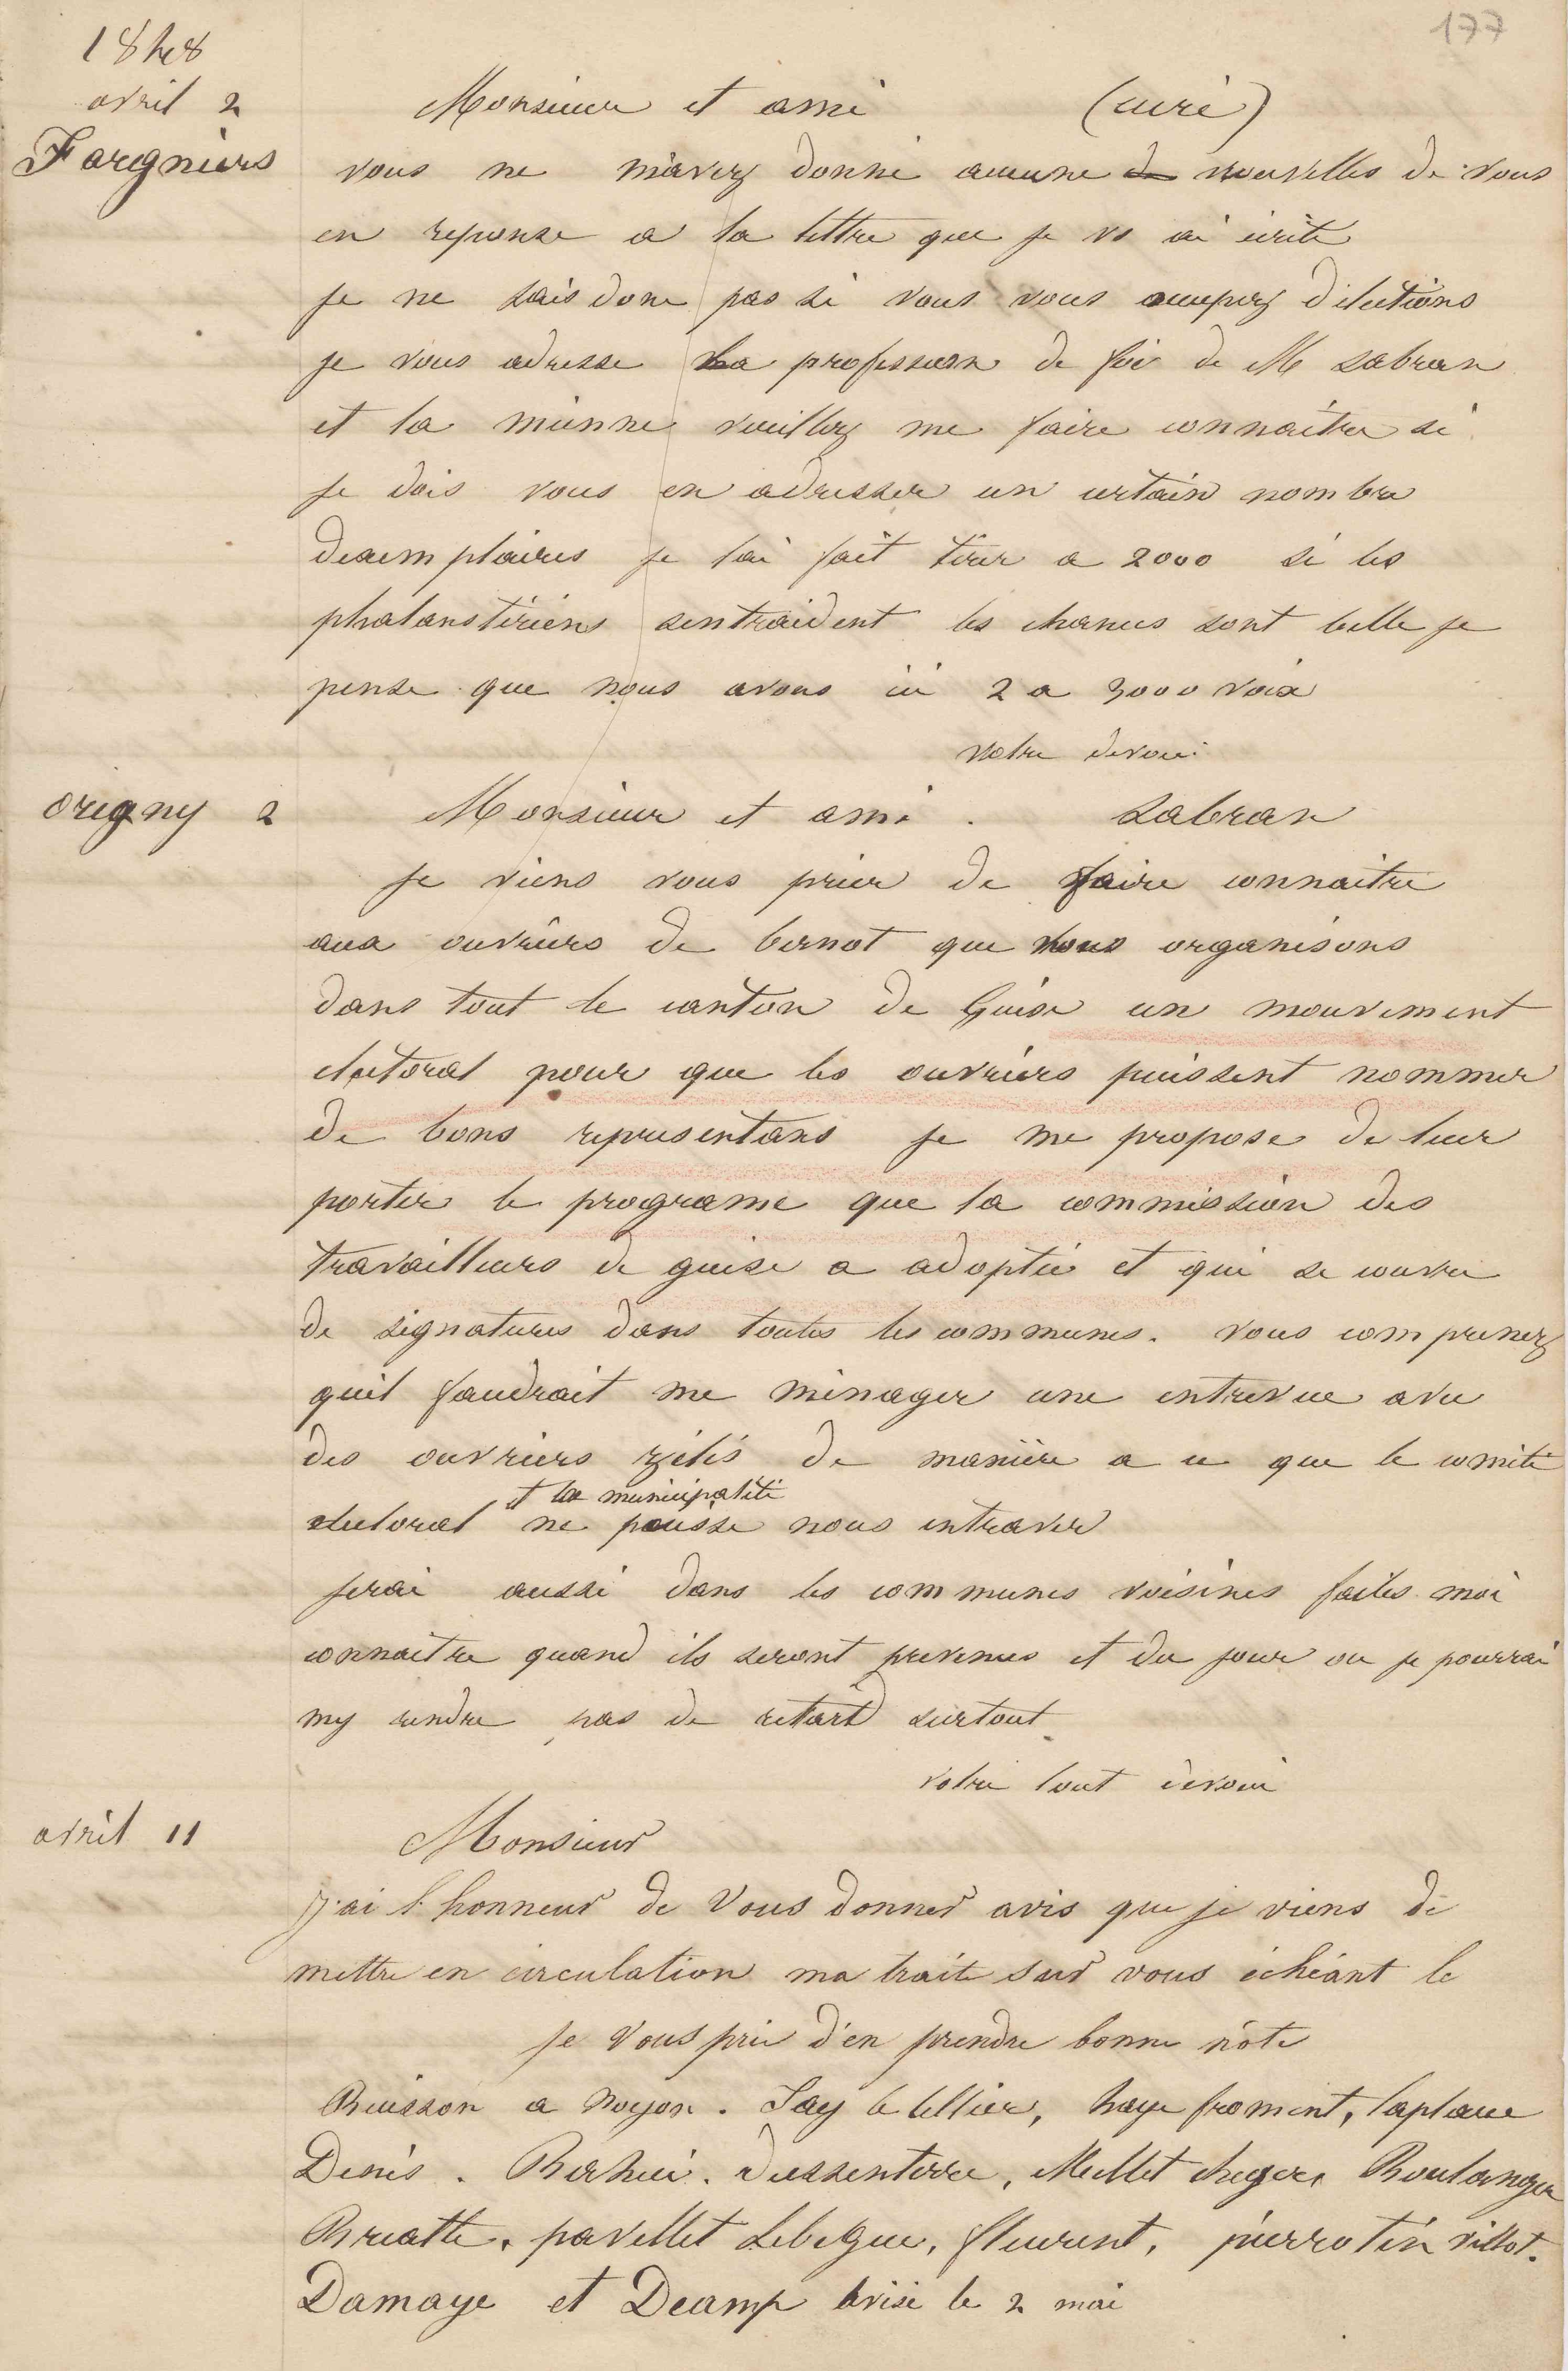 177
1848
avril 2
Fargniers
Monsieur et ami (curé)
vous ne m'avez donné aucune de nouvelles de vous
en reponse a la lettre que je vs ai écrite
je ne sais donc pas si vous vous occupez d'élections
je vous adresse la profession de foi de M Labran
et la mienne veuillez me faire connaître si
je dois vous en adresser un certain nombre
dexemplaires je lai fait tirer a 2000 si les
phalanstériens sentraident les chances sont belle je
pense que nous avons ici 2 a 3000 voix
votre devoué
origny 2
Monsieur et ami . Labran
je viens vous prier de faire connaitre
aux ouvriers de bernot que nous organisons
dans tout le canton de Guise un mouvement
electoral pour que les ouvriers puissent nommer
de bons representans je me propose de leur
porter le programe que la commission des
travailleurs de guise a adoptée et qui se couvre
de signatures dans toutes les communes. vous comprenez
quil faudrait me ménager une entrevue avec
des ouvriers zélés de manière a ce que le comité
et la municipalité
electoral ne puisse nous entraver
jerai aussi dans les communes voisines faites moi
connaitre quand ils seront prevenus et du jour ou je pourrai
my rendre pas de retard surtout
votre tout devoué
avril 11
Monsieur
J'ai l'honneur de vous donner avis que je viens de
mettre en circulation ma traite sur vous échéant le
je vous prie d'en prendre bonne note
Buisson a noyon . Say letellier, haye froment, laplace
Denis . dessenterre, Mellet Boulanger
Briatte. pavellet Lebegue, fleurent, pierrotin villot.
Damaye et Decamp avisé le 2 mai